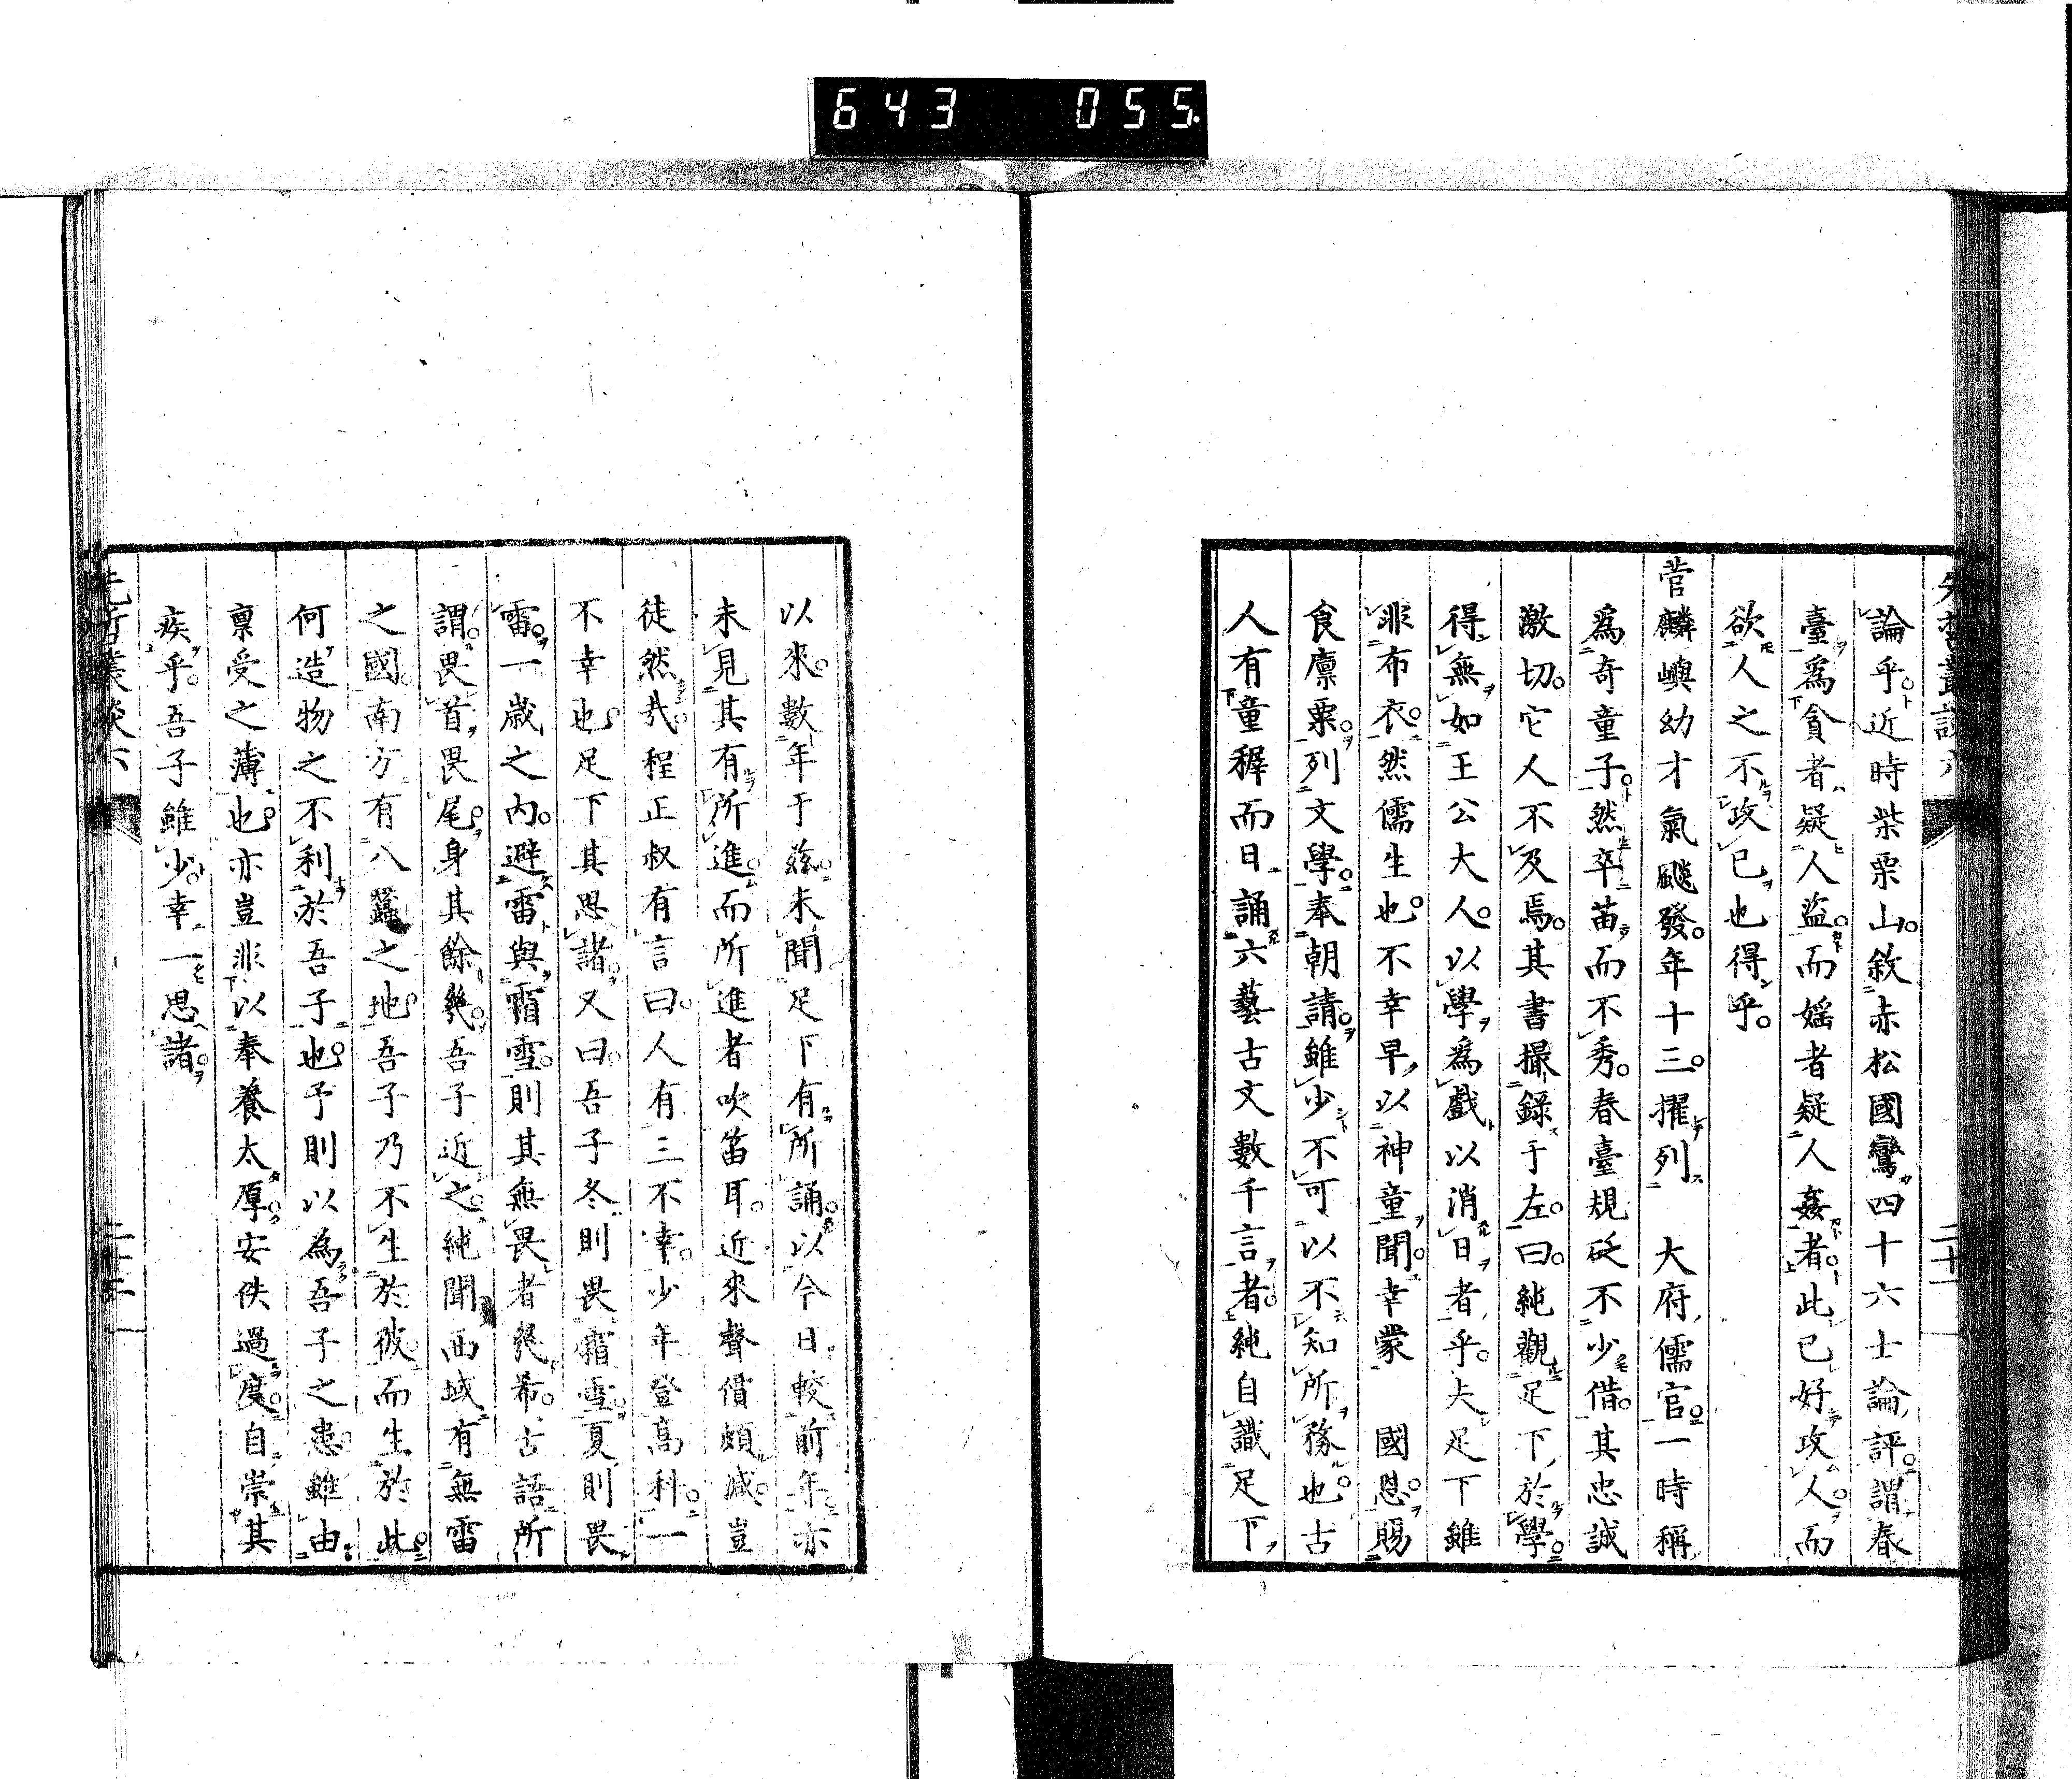 643 055
先哲叢談六 二十一
論乎近時柴栗山敘赤松國鸞四十六士論評謂春
臺爲貪者疑人盗而婬者疑人姦者此已好攻人而
欲人之不攻已也得乎
菅麟嶼幼才氣飈發年十三擢列 大府儒官一時稱
爲奇童子然卒苗而不秀春臺規砭不少借其忠誠
激切它人不及焉其書撮錄于左曰純觀足下於學
得無如王公大人以學爲戲以消日者乎夫足下雖
非布衣然儒生也不幸早以神童聞幸蒙 國恩賜
食廪粟列文學奉朝請雖少不可以不知所務也古
人有童穉而日誦六藝古文數千言者純自識足下
以來數年于兹未聞足下有所誦以今日較前年亦
未見其有所進而所進者吹笛耳近來聲價頗減豈
徒然哉程正叔有言曰人有三不幸少年登高科一
不幸也足下其思諸又曰吾子冬則畏霜雪夏則畏
雷一歳之内避雷與霜雪則其無畏者幾希古語所
謂畏首畏尾身其餘幾吾子近之純聞西域有無雷
之國南方有八蠶之地吾子乃不生於彼而生於此
何造物之不利於吾子也予則以為吾子之患雖由
禀受之薄也亦豈非以奉養太厚安佚過度自崇其
疾乎吾子雖少幸一思諸
先哲叢談六